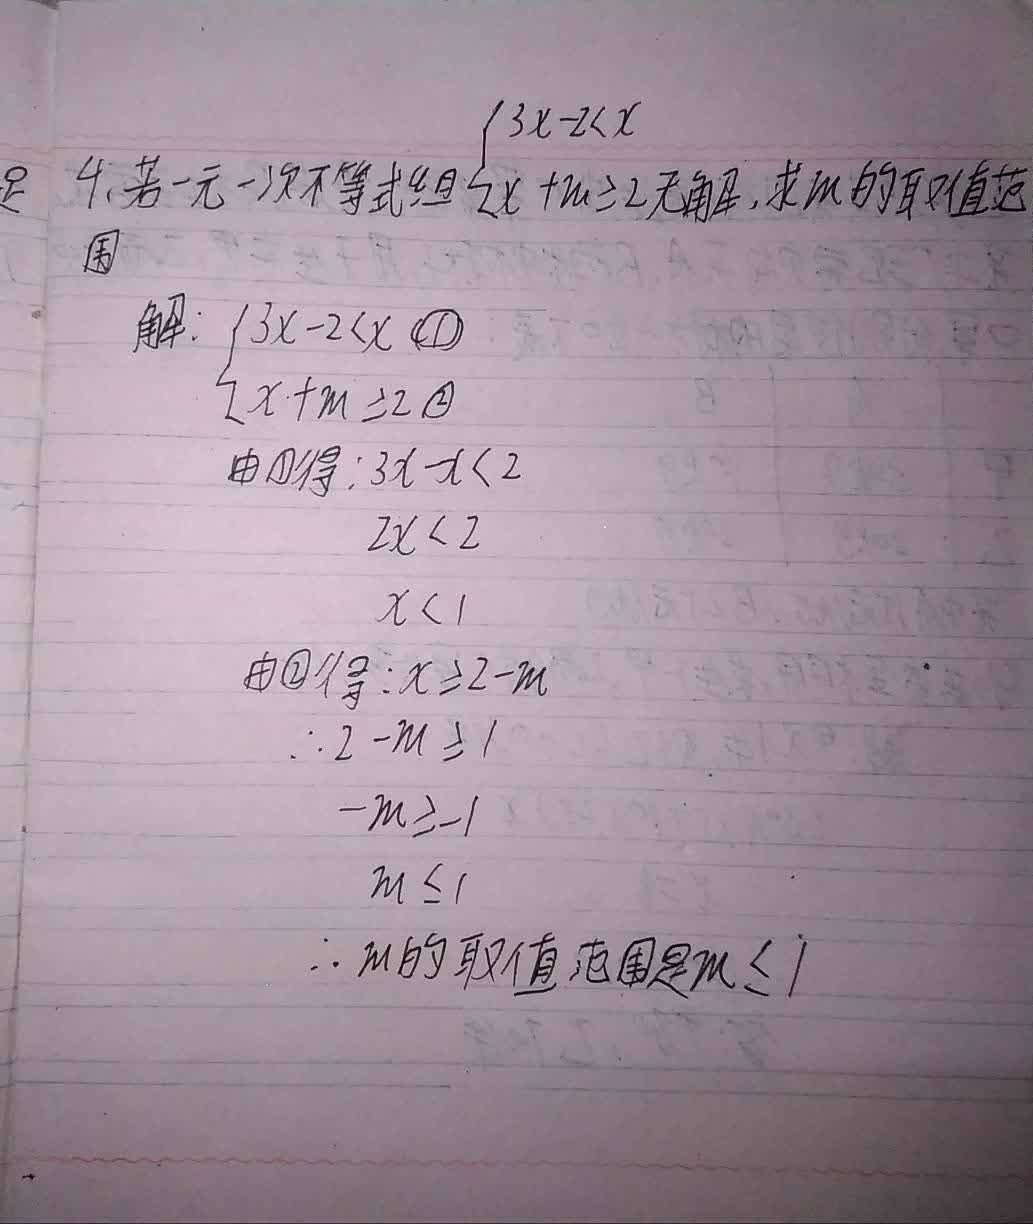 {3x-2<x
4.若一元一次不等式组{x+m≥2无解,求m的取值范
围
解:{3x-2<x ①
{x+m≥2②
由①得:3x-x<2
2x<2
x<1
由②得:x≥2-m
∴2-m≥1
-m≥-1
m≤1
∴m的取值范围是m≤1